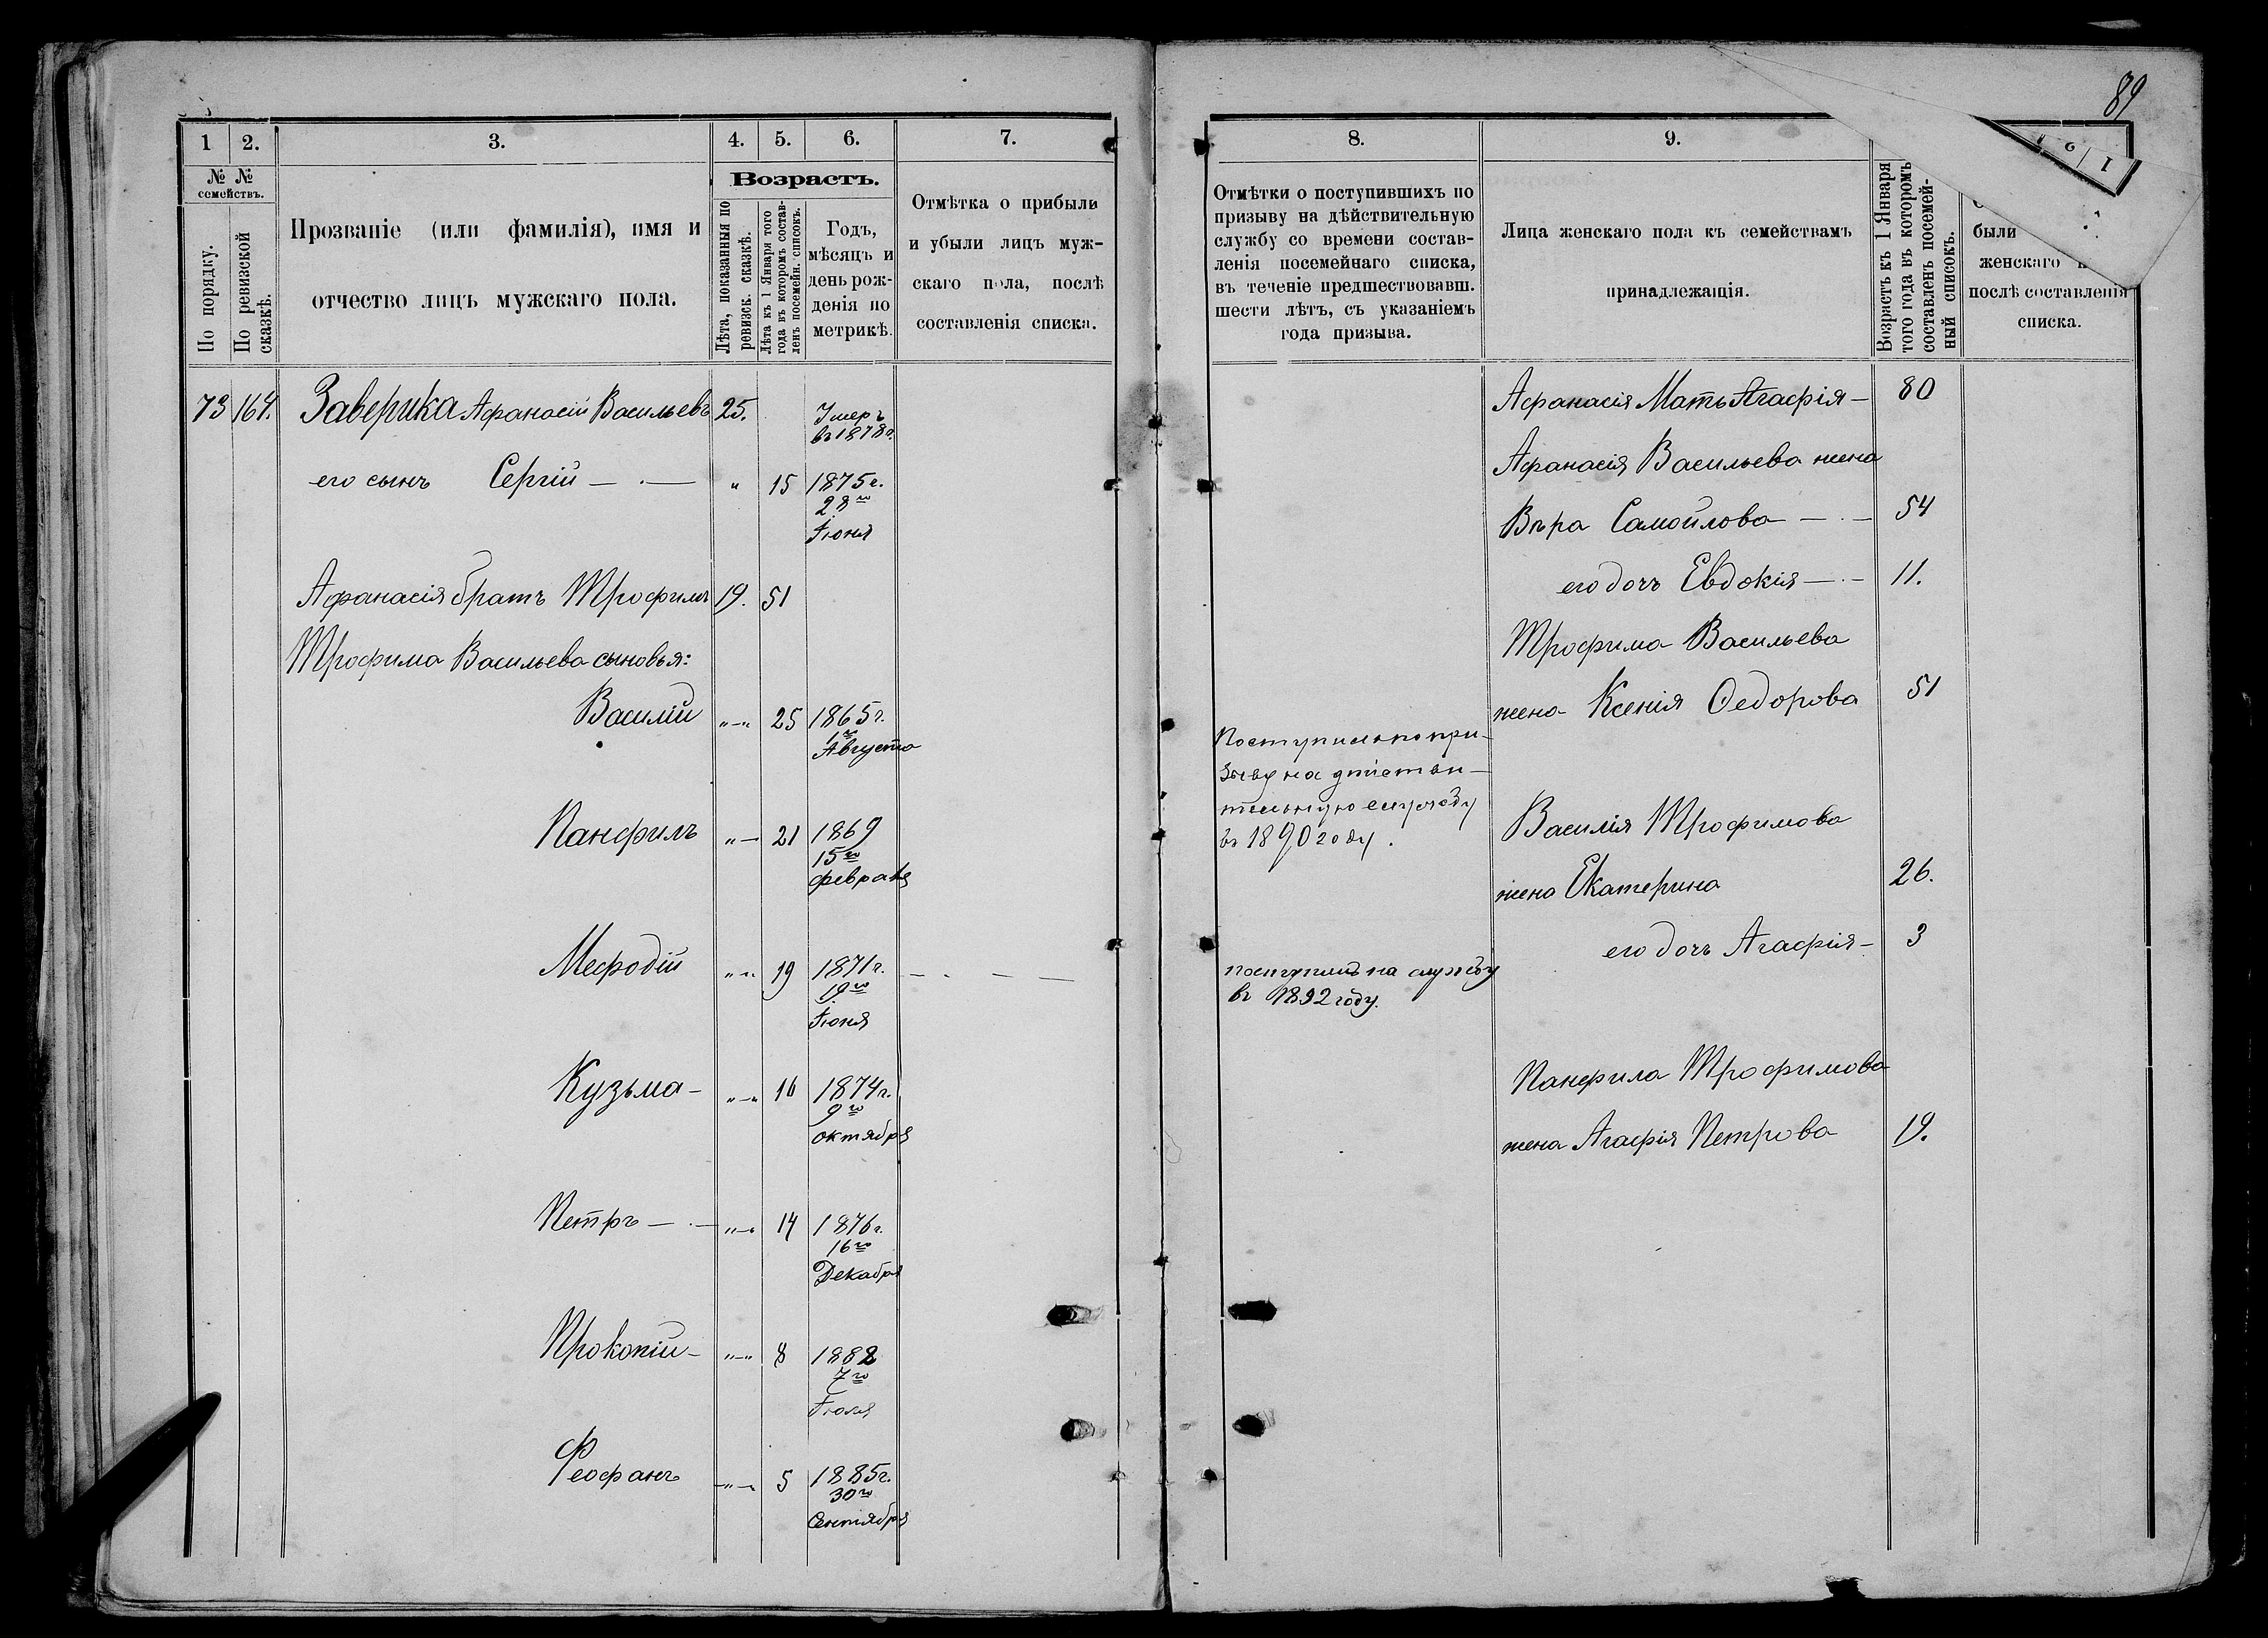 89
1 2. 3. 4. 5. 6. 7.
№ №
семействъ.
По порядку.
По ревизской сказкѣ.
Прозваніе (или фамилія), имя и
отчество лицъ мужскаго пола.
Возрастъ.
Лѣта, показанныя по ревизск. сказкѣ.
Лѣта къ 1 Января того года въ которомъ составленъ посемейн. списокъ.
Годъ,
мѣсяцъ и
день рож-
денія по
метрикѣ.
Отмѣтка о прибыли
и убыли лицъ муж-
скаго пола, послѣ
составленія списка.
73 164. Заверика Афанасій Васильевъ 25. Умеръ
въ 1878 г.
его сынъ Сергій — . — " 15 1875 г.
28го
Іюня
Афанасія братъ Трофимъ 19. 51
Трофима Васильева сыновья:
Василій "—" 25 1865 г.
1го
Августа
Панфилъ "— 21 1869
15го
февраля
Мефодій "-" 19 1871 г. — . — —
19го
Іюня
Кузьма — "—" 16 1874 г.
9го
октября
Петръ — . — "—" 14 1876 г.
16го
Декабря
Прокопій — "—" 8 1882
7го
Іюля
Феофанъ —"— 5 1885 г.
30го
Сентября
8. 9.
Отмѣтки о поступившихъ по
призыву на дѣйствительную
службу со времени состав-
ленія посемейнаго списка,
въ теченіе предшествовавш.
шести лѣтъ, съ указаніемъ
года призыва.
Лица женскаго пола къ семействамъ
принадлежащія.
Возрастъ къ 1 Января
того года въ которомъ
составленъ посемей-
ный списокъ.
были
женскаго
послѣ составленія
списка.
Афанасія Мать Агафія — 80
Афанасія Васильева жена
Вѣра Самойлова — . — 54
его дочь Евдокія — . — 11.
Трофима Васильева
жена Ксенія Ѳедорова 51
Поступилъ по при-
зыву на дѣйстви-
тельную службу
въ 1890 году.
Василія Трофимова
жена Екатерина 26.
его дочь Агафія — 3
поступилъ на службу
въ 1892 году.
Панфила Трофимова
жена Агафія Петрова 19.